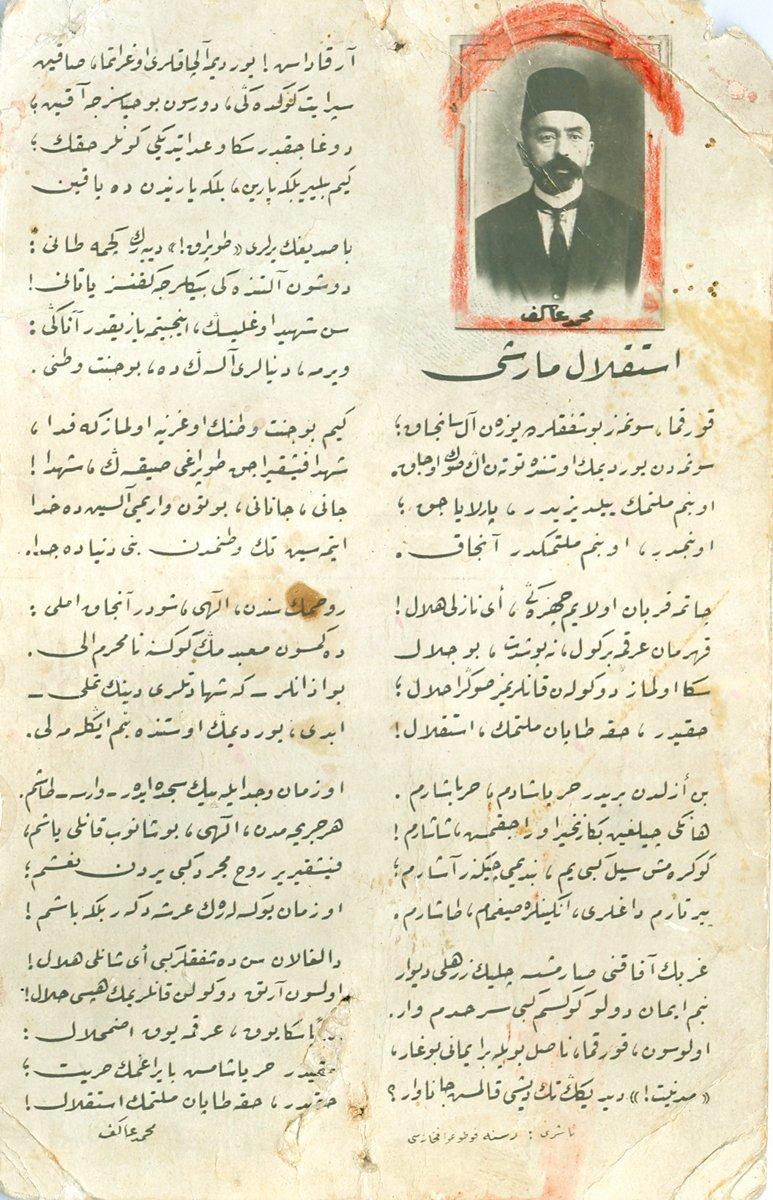 محمد عاكف
استقلال مارشى
قورقما، سونمز بو شفقلرده يوزن آل سانجاق؛
سونمه‌دن يورديمك اوستنده توتن اڭ صوڭ اوجاق.
او بنم ملتمك ييلديزيدر، پارلاياجق؛
او بنمدر، او بنم ملتمكدر آنجاق.
چاتمه قربان اولايم چهره‌ڭى، أى نازلى هلال!
قهرمان عرقمه بر كول، نه بو شدت، بو جلال
سكا اولماز دوكولن قانلريمز صوڭرا حلال؛
حقيدر، حقه طاپان ملتمك، استقلال!
بن أزلدن بريدر حر ياشادم، حر ياشارم.
هانكى چيلغين بكا زنجير اوراجقمش، شاشارم!
كوكره‌مش سيل كبى يم، بنديمى چيكنر آشارم؛
ييرتارم داغلرى، انكينلره صيغمام، طاشارم.
غربك آفاقنى صارمشسه چليك زرهلى ديوار
بنم ايمان دولو كوكسم كبى سرحدم وار.
اولوسون، قورقما، ناصل بويله بر ايمانى بوغار،
«مدنيت!» ديديكك تك ديشى قالمش جاناوار؟
ناشرى :
آرقاداش! يورديمه آلچاقلرى اوغراتما، صاقين
سپر ايت كوكده‌ڭى، دورسون بو حياسزجه آقين؛
دوغاجقدر سكا وعد ايتديكى كونلر حقك؛
كيم بيلير بلكه يارين، بلكه ياريندن ده ياقين
باصديغك يرلرى «طوپراق!» ديه‌رك كچمه طانى :
دوشون آلتنده‌كى بيكلرجه كفنسز ياتانى!
سن شهيد اوغليسك، اينجيتمه يازيقدر آتاڭى :
ويرمه، دنيالرى آلسه‌ڭ ده، بو جنت وطنى.
كيم بو جنت وطنك اوغرينه اولماز كه فدا،
شهدا فيشقيراجق طوپراغى صيقسه‌ڭ، شهدا!
جانى، جانانى، بوتون واريمى آلسين ده خدا
ايتمه‌سين تك وطنمدن بنى دنياده جدا.
روحمك سندن، الهى، شودر آنجاق املى :
دكمسون معبدمك كوكسنه نامحرم الى.
بو اذانلر ـ كه شهادتلرى دينك تملى ـ
ابدى، يورديمك اوستنده بنم ايكله‌ملى.
او زمان وجد ايله بيك سجده ايدر ـ وارسه ـ طاشم.
هر جريحه‌مدن، الهى، بوشانوب قانلى ياشم،
فيشقيرير روح مجرد كبى يردن نعشم؛
او زمان يوكسله‌رك عرشه دكر بلكه باشم!
دالغالان سن ده شفقلر كبى أى شانلى هلال!
اولسون آرتق دوكولن قانلريمك هپسى حلال!
سكا يوق، عرقمه يوق اضمحلال :
حقيدر حر ياشامش بايراغمك حريت؛
حقيدر، حقه طاپان ملتمك استقلال!
محمد عاكف